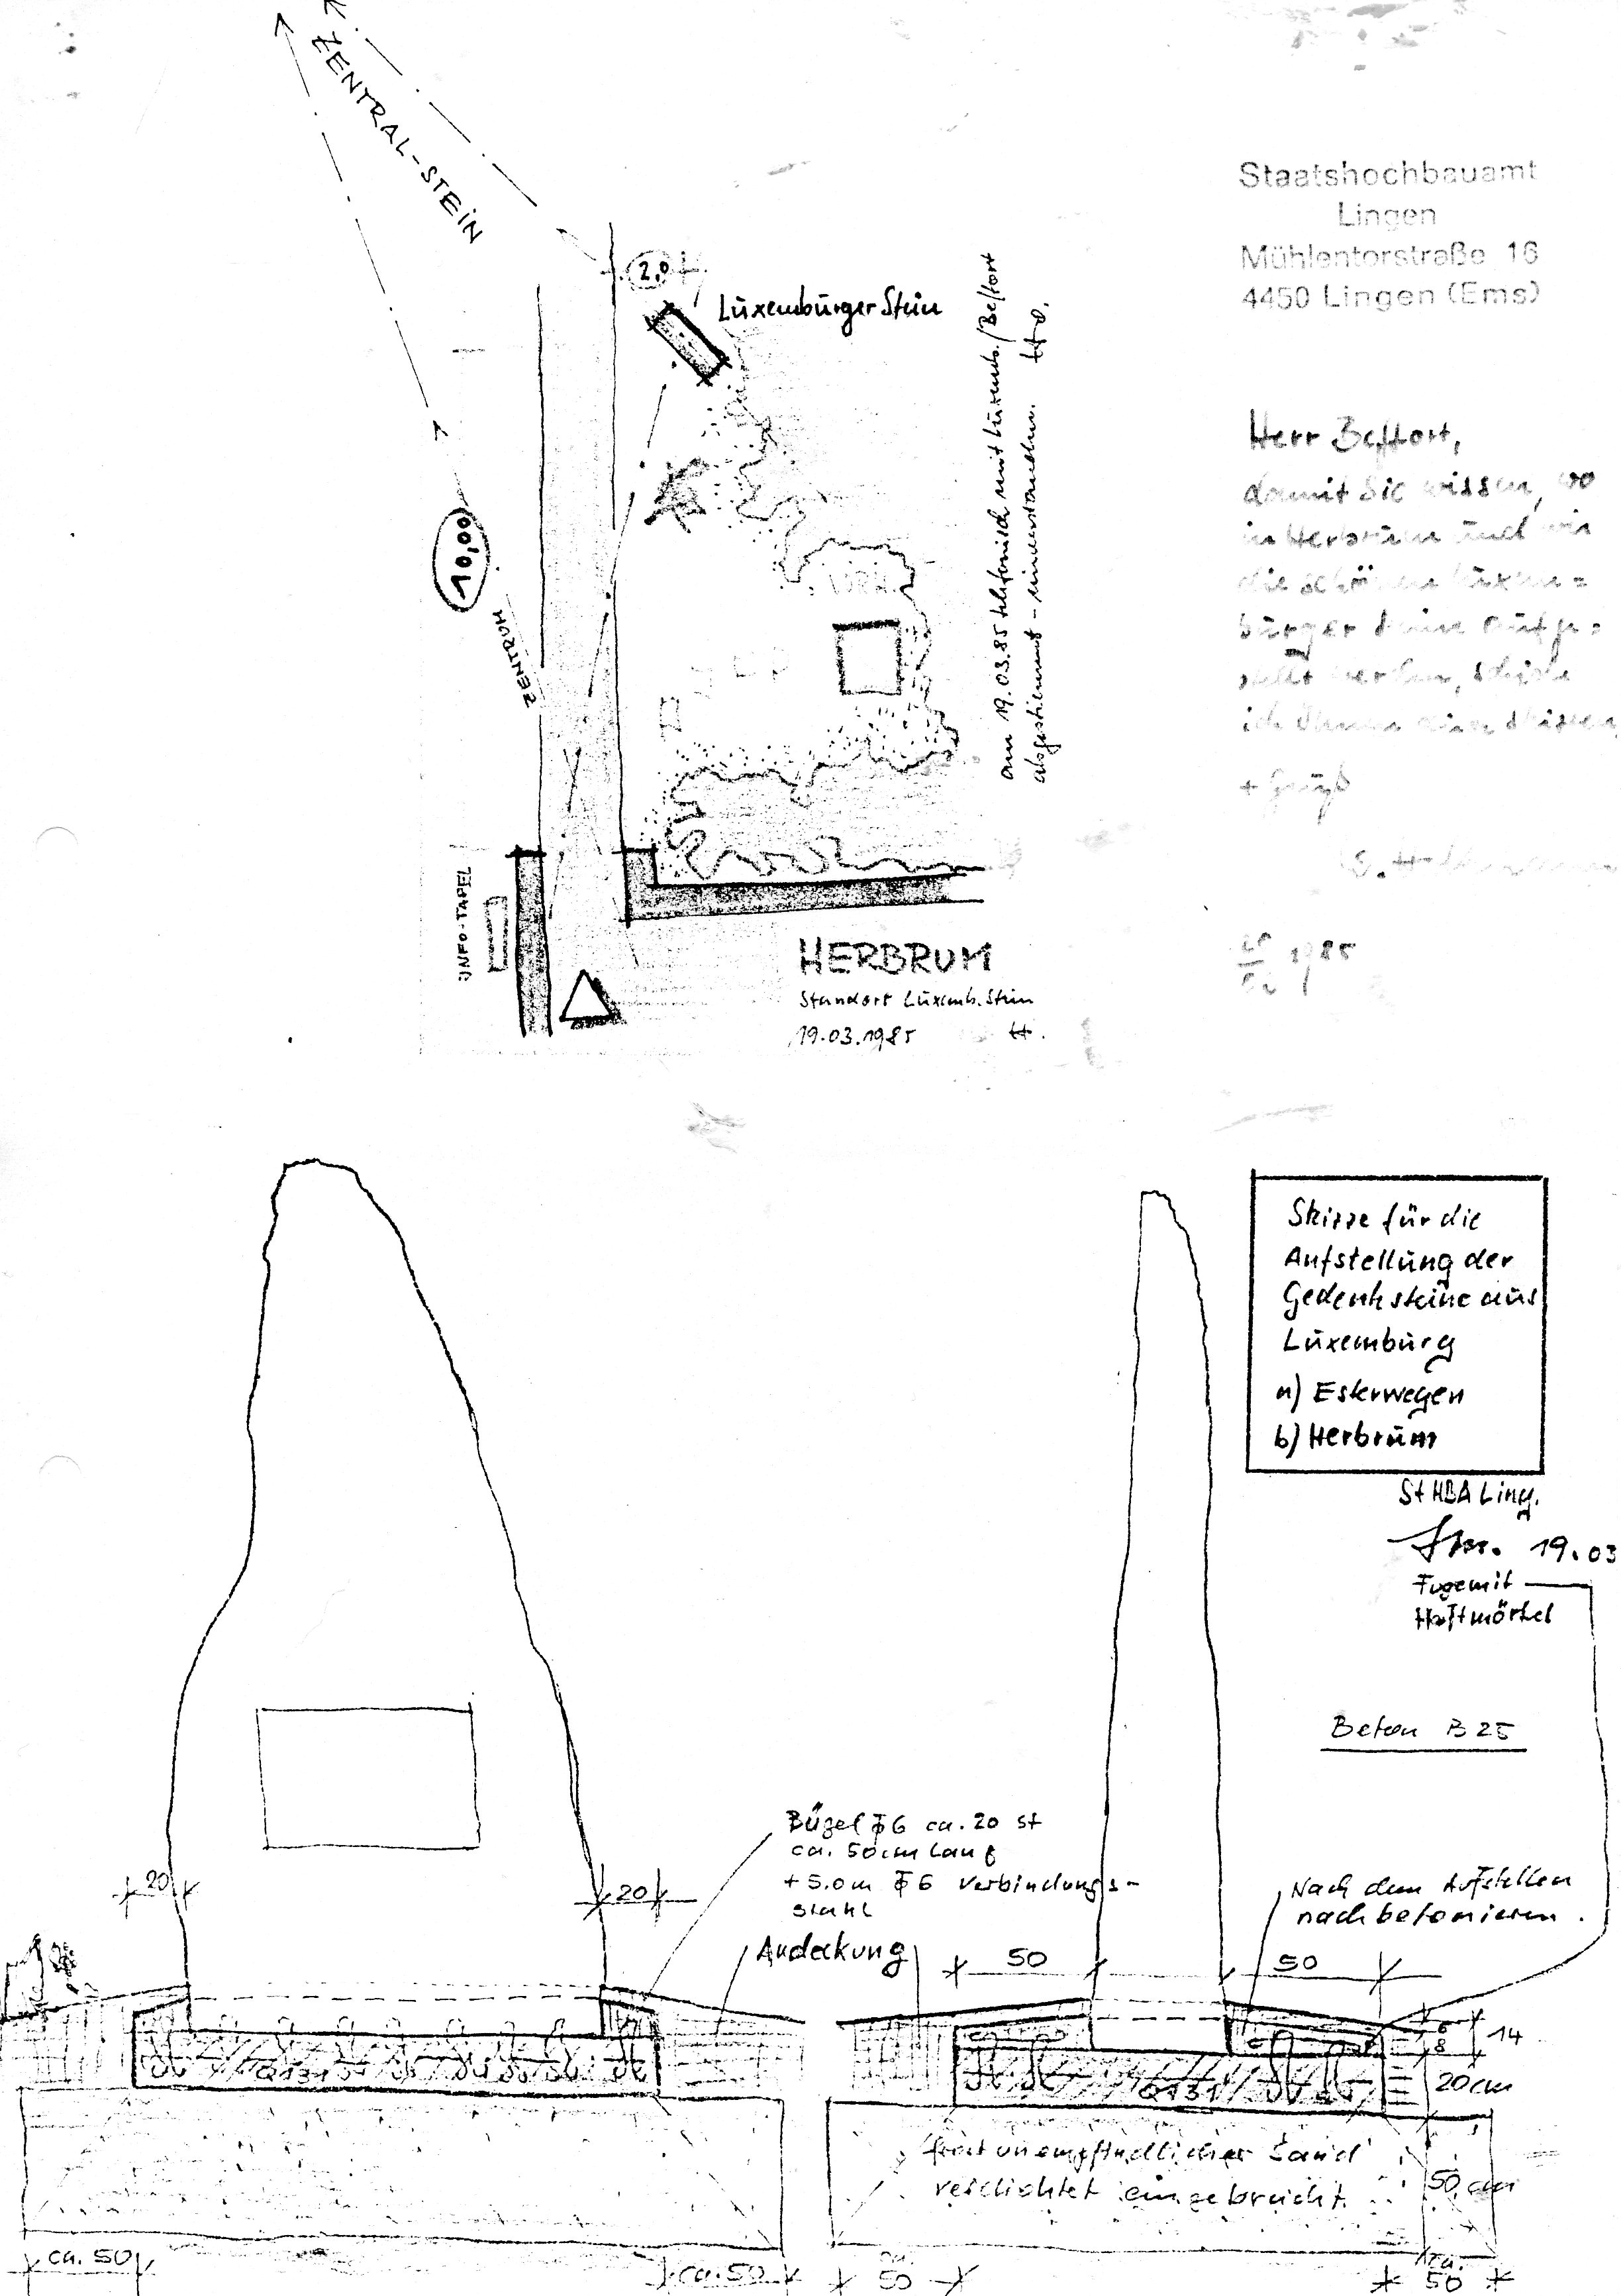 ZENTRAL-STEIN
2,0
Luxemburger Stein
10,00
ZENTRUM
am 19.03.85 telefonisch mit Luxemb./Beffort
abgestimmt - einverstanden.
INFO-TAFEL
HERBRUM
Standort Luxemb. Stein
19.03.1985 H.
Staatshochbauamt
Lingen
Mühlentorstraße 16
4450 Lingen (Ems)
Herr Beffort,
damit Sie wissen, wo
in Herbrum und wie
die schönen Luxem=
burger Steine aufge=
stellt werden, schicke
ich Ihnen eine Skizze
+ Gruß
1985
Skizze für die
Aufstellung der
Gedenksteine aus
Luxemburg
a) Esterwegen
b) Herbrum
St HBA Ling.
19.03
Fuge mit
Haftmörtel
Beton B 25
Bügel ϕ6 ca. 20 st
ca. 50cm lang
+ 5.0m ϕ6 Verbindungs-
stahl
Andeckung
Nach dem Aufstellen
nachbetonieren.
20
20
50
50
Q131
Q131
6
8
14
20cm
frostunempfindlicher Sand
verdichtet eingebracht.
50cm
ca. 50
ca. 50
50
ca.
50